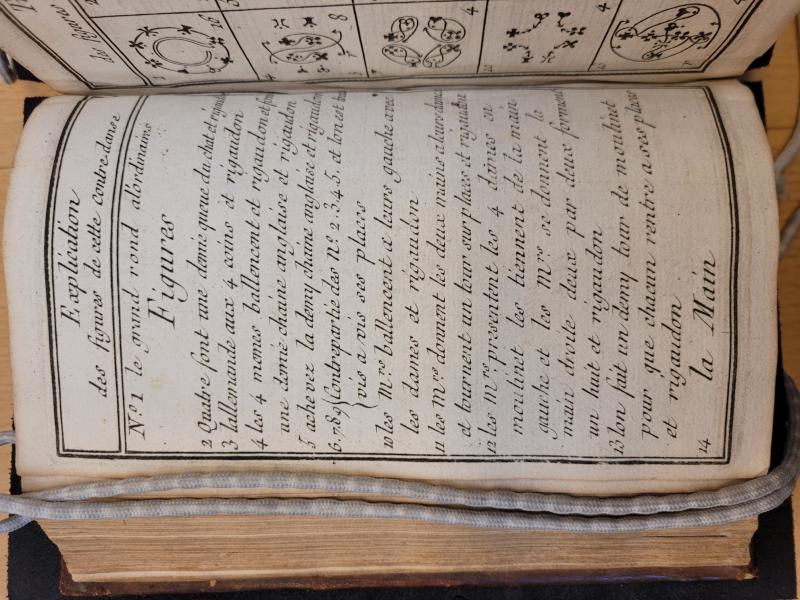 Explication
des figures de cette contre-danse
Nº 1 le grand rond al'ordinaires
Figures
2 Quatre font une demie queue du chat et rigaudon
3 l'allemande aux 4 coins et rigaudon
4 les 4 memes ballencent et rigaudon et font
une demie chaine anglaise et rigaudon
5 achevez la demy chaine anglaise et rigaudon
6.7.8.9 Contrepartie des nº 2.3.4.5. et lon est
vis a vis ses places
10 les Mrs ballencent a leurs gauche avec
les dames et rigaudon
11 les Mrs donnent les deux mains a leurs dames
et tournent un tour sur places et rigaudon
12 les Mrs presentent les 4 dames en
moulinet les tiennent de la main
gauche et les Mrs se donnent la
main droite deux par deux formant
un huit et rigaudon
13 lon fait un demy tour de moulinet
pour que chacun rentre a ses places
et rigaudon
14 la Main
16
8
4
4